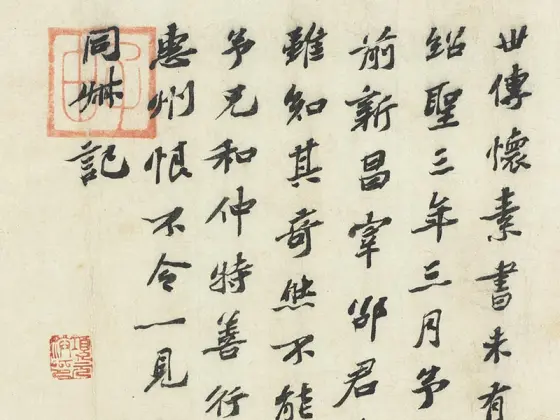 世傳懷素書未有
紹聖三年三月予
前新昌宰邵君
雖知其奇然不能
予兄和仲特善行
惠州恨不令一見
同叔記
項元汴印